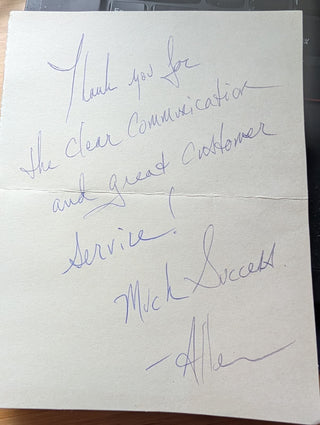 Thank you for
the clear communication
and great customer
service!
Much Success.
- Allen